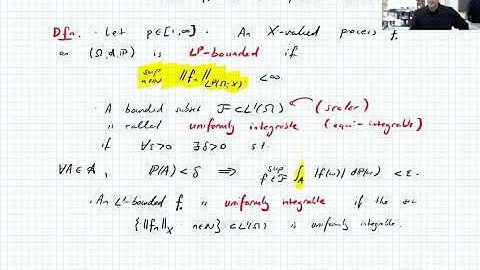 Dfn. · Let p∈[1,∞]. An X-valued process f.
on (Ω,𝒜,ℙ) is Lᵖ-bounded if
sup n∈ℕ ‖fₙ‖_{Lᵖ(Ω;X)} < ∞.
· A bounded subset ℱ⊂L¹(Ω) (scalar)
is called uniformly integrable (equi-integrable)
if ∀ε>0 ∃δ>0 s.t.
∀A∈𝒜, ℙ(A)<δ ⟹ sup f∈ℱ ∫_A |f(ω)| dℙ(ω) < ε.
· An L¹-bounded f. is uniformly integrable if the
{‖fₙ‖_X : n∈ℕ} ⊂ L¹(Ω) is uniformly integrable.